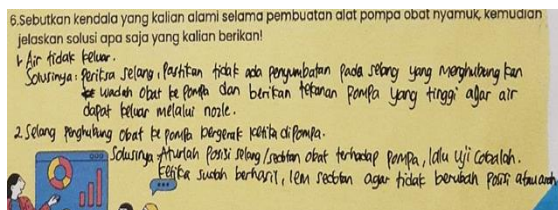 6.Sebutkan kendala yang kalian alami selama pembuatan alat pompa obat nyamuk, kemudian
jelaskan solusi apa saja yang kalian berikan!
1. Air tidak keluar.
Solusinya: Periksa selang, Pastikan tidak ada penyumbatan pada selang yang menghubung kan
wadah obat ke Pompa dan berikan tekanan Pompa yang tinggi agar air
dapat keluar melalui nozle.
2. Selang Penghubung obat ke pompa bergerak ketika di Pompa.
Solusinya: Aturlah Posisi selang/sedotan obat terhadap Pompa, lalu uji cobalah.
Ketika sudah berhasil, lem sedotan agar tidak berubah Posisi atau arah